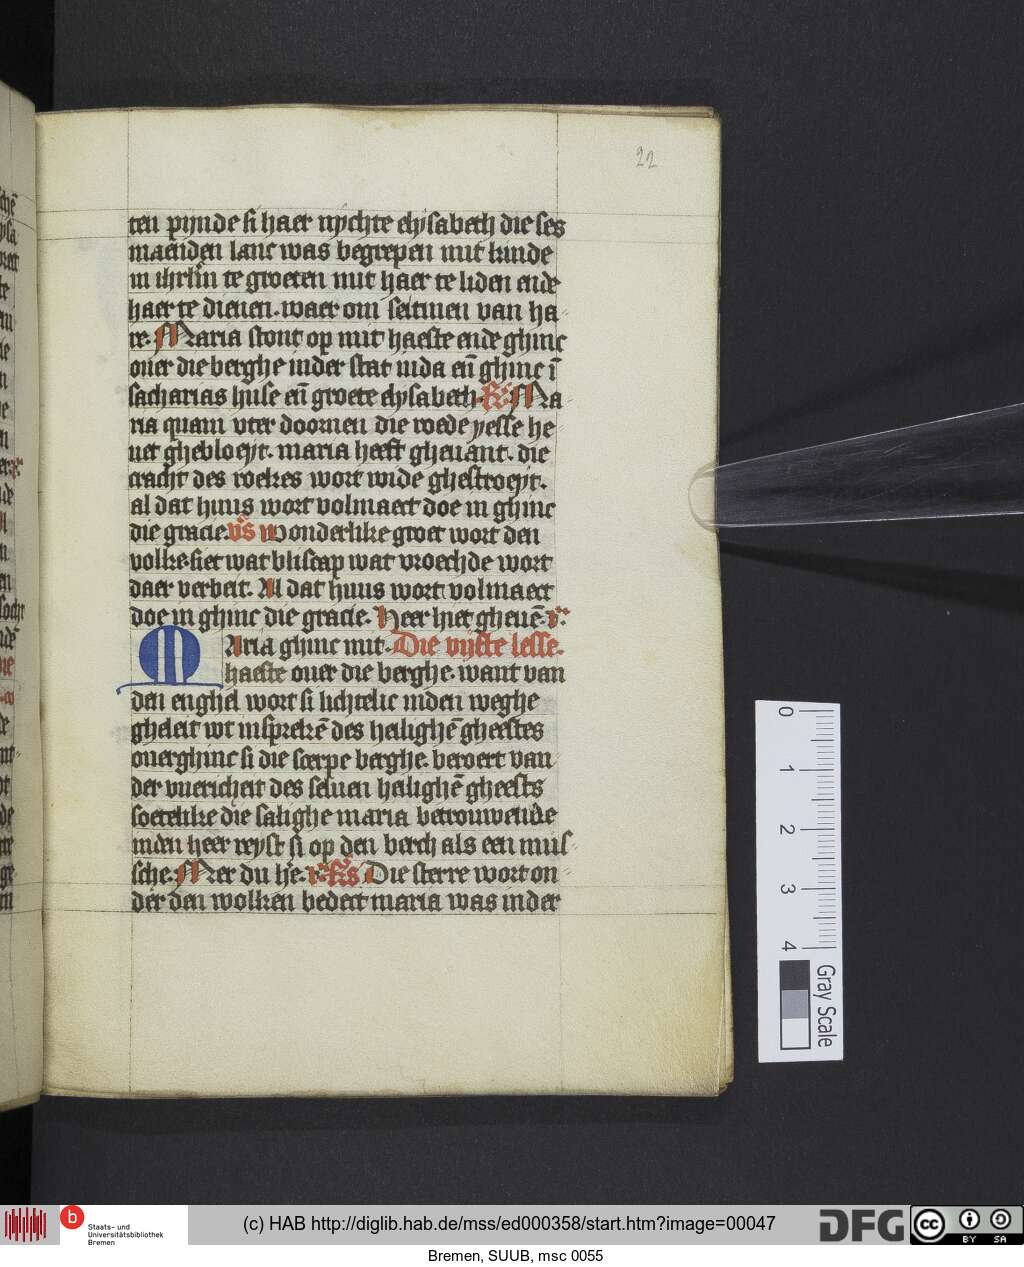 22
ten pijnde si haer nychte elysabeth die ses
maenden lanc was begrepen mit kinde
in ihrlm te groeten mit haer te liden ende
haer te dienen. waer om seitmen van ha
re. Maria stont op mit haeste ende ghinc
ouer die berghe inder stat iuda en̄ ghinc ī
sacharias huse en̄ groete elysabeth. Ma
ria quam vter doornen die roede yesse he
uet ghebloeyt. maria heeft ghewant. die
cracht des roekes wort wide ghestroeyt.
al dat huus wort volmaect doe in ghinc
die gracie. v̄s wonderlike groet wort den
volke. siet wat bliscap wat vroechde wort
daer verbeit. Al dat huus wort volmaect
doe in ghinc die gracie. Heer hier gheuē. r̄.
Maria ghinc mit. Die vijfte lesse.
haeste ouer die berghe. want van
den enghel wort si lichtelic inden weghe
gheleit wt insprekē des heilighē gheestes
ouerghinc si die scerpe berghe. beroert van
der vuericheit des seluen heilighē gheests
soetelike die salighe maria betrouwende
inden heer reyst si op den berch als een mus
sche. Mer du hē. Die sterre wort on
der den wolken bedect maria was inder
0
1
2
3
4
Gray Scale
b
Staats- und
Universitätsbibliothek
Bremen
(c) HAB http://diglib.hab.de/mss/ed000358/start.htm?image=00047
DFG
cc
BY SA
Bremen, SUUB, msc 0055